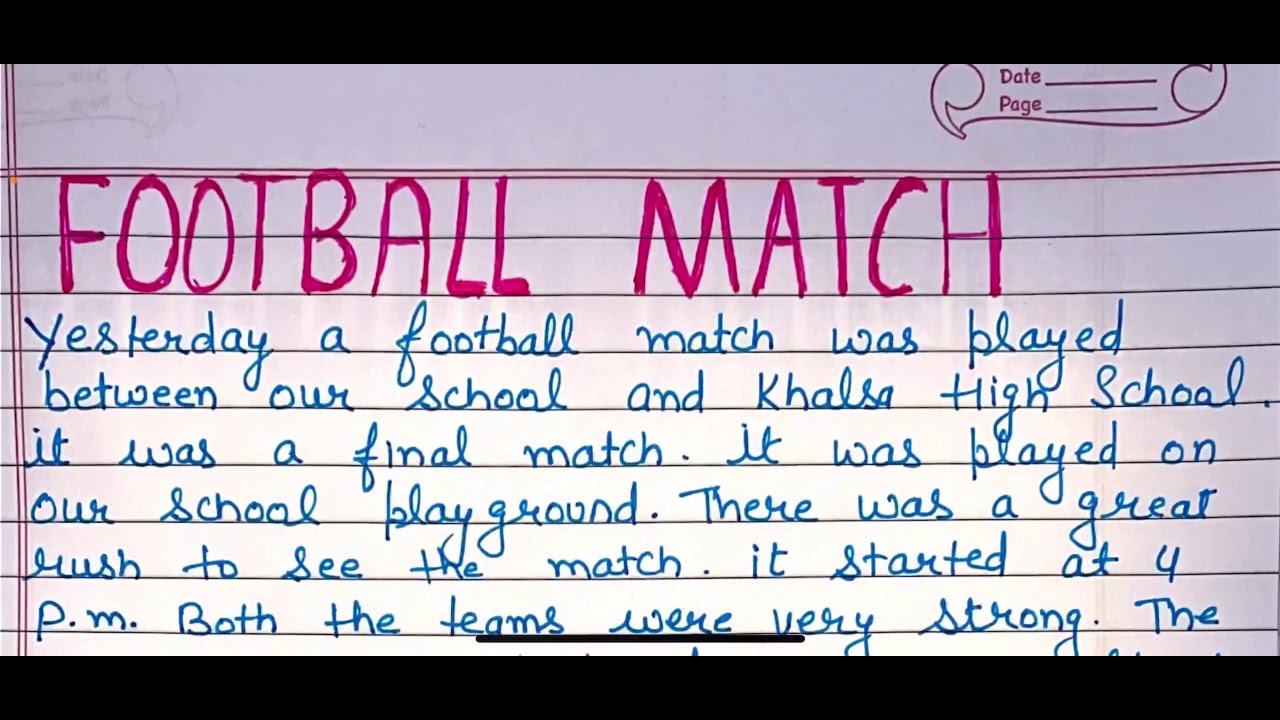 Date
Page
FOOTBALL MATCH
Yesterday a football match was played
between our school and Khalsa High School.
it was a final match. It was played on
our school playground. There was a great
rush to see the match. it started at 4
P.m. Both the teams were very strong. The